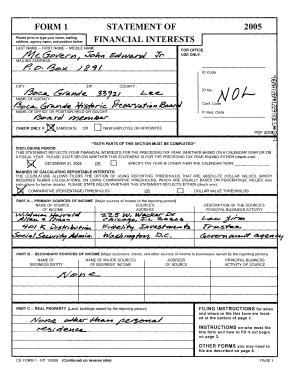 FORM 1
STATEMENT OF
FINANCIAL INTERESTS
2005
Please print or type your name, mailing
address, agency name, and position below:
LAST NAME - FIRST NAME - MIDDLE NAME
McGovern, John Edward Jr
MAILING ADDRESS
P.O. Box 1891
CITY ZIP COUNTY
Boca Grande 33921 Lee
NAME OF AGENCY
Boca Grande Historic Preservation Board
NAME OF OFFICE OR POSITION HELD OR SOUGHT
Board member
CHECK ONLY IF CANDIDATE OR NEW EMPLOYEE OR APPOINTEE
FOR OFFICE
USE ONLY:
ID Code
ID No.
Conf. Code
P. Req. Code
NOL
PDF 2005
**BOTH PARTS OF THIS SECTION MUST BE COMPLETED**
DISCLOSURE PERIOD:
THIS STATEMENT REFLECTS YOUR FINANCIAL INTERESTS FOR THE PRECEDING TAX YEAR, WHETHER BASED ON A CALENDAR YEAR OR ON
A FISCAL YEAR. PLEASE STATE BELOW WHETHER THIS STATEMENT IS FOR THE PRECEDING TAX YEAR ENDING EITHER (check one):
DECEMBER 31, 2005 OR SPECIFY TAX YEAR IF OTHER THAN THE CALENDAR YEAR:
MANNER OF CALCULATING REPORTABLE INTERESTS:
THE LEGISLATURE ALLOWS FILERS THE OPTION OF USING REPORTING THRESHOLDS THAT ARE ABSOLUTE DOLLAR VALUES, WHICH
REQUIRES FEWER CALCULATIONS, OR USING COMPARATIVE THRESHOLDS, WHICH ARE USUALLY BASED ON PERCENTAGE VALUES (see
instructions for further details). PLEASE STATE BELOW WHETHER THIS STATEMENT REFLECTS EITHER (check one):
COMPARATIVE (PERCENTAGE) THRESHOLDS OR DOLLAR VALUE THRESHOLDS
PART A -- PRIMARY SOURCES OF INCOME [Major sources of income to the reporting person]
NAME OF SOURCE OF INCOME
SOURCE'S ADDRESS
DESCRIPTION OF THE SOURCE'S PRINCIPAL BUSINESS ACTIVITY
Wildman Harrold Allen & Dixon 225 W. Wacker Dr Chicago, IL 60606 Law firm
401K Distribution Fidelity Investments Trustee
Social Security Admin. Washington D.C. Government agency
PART B -- SECONDARY SOURCES OF INCOME [Major customers, clients, and other sources of income to businesses owned by the reporting person]
NAME OF BUSINESS ENTITY
NAME OF MAJOR SOURCES OF BUSINESS' INCOME
ADDRESS OF SOURCE
PRINCIPAL BUSINESS ACTIVITY OF SOURCE
None
PART C -- REAL PROPERTY [Land, buildings owned by the reporting person]
None other than personal
residence
FILING INSTRUCTIONS for when
and where to file this form are locat-
ed at the bottom of page 2.
INSTRUCTIONS on who must file
this form and how to fill it out begin
on page 3.
OTHER FORMS you may need to
file are described on page 6.
CE FORM 1 - Eff. 1/2006 (Continued on reverse side) PAGE 1